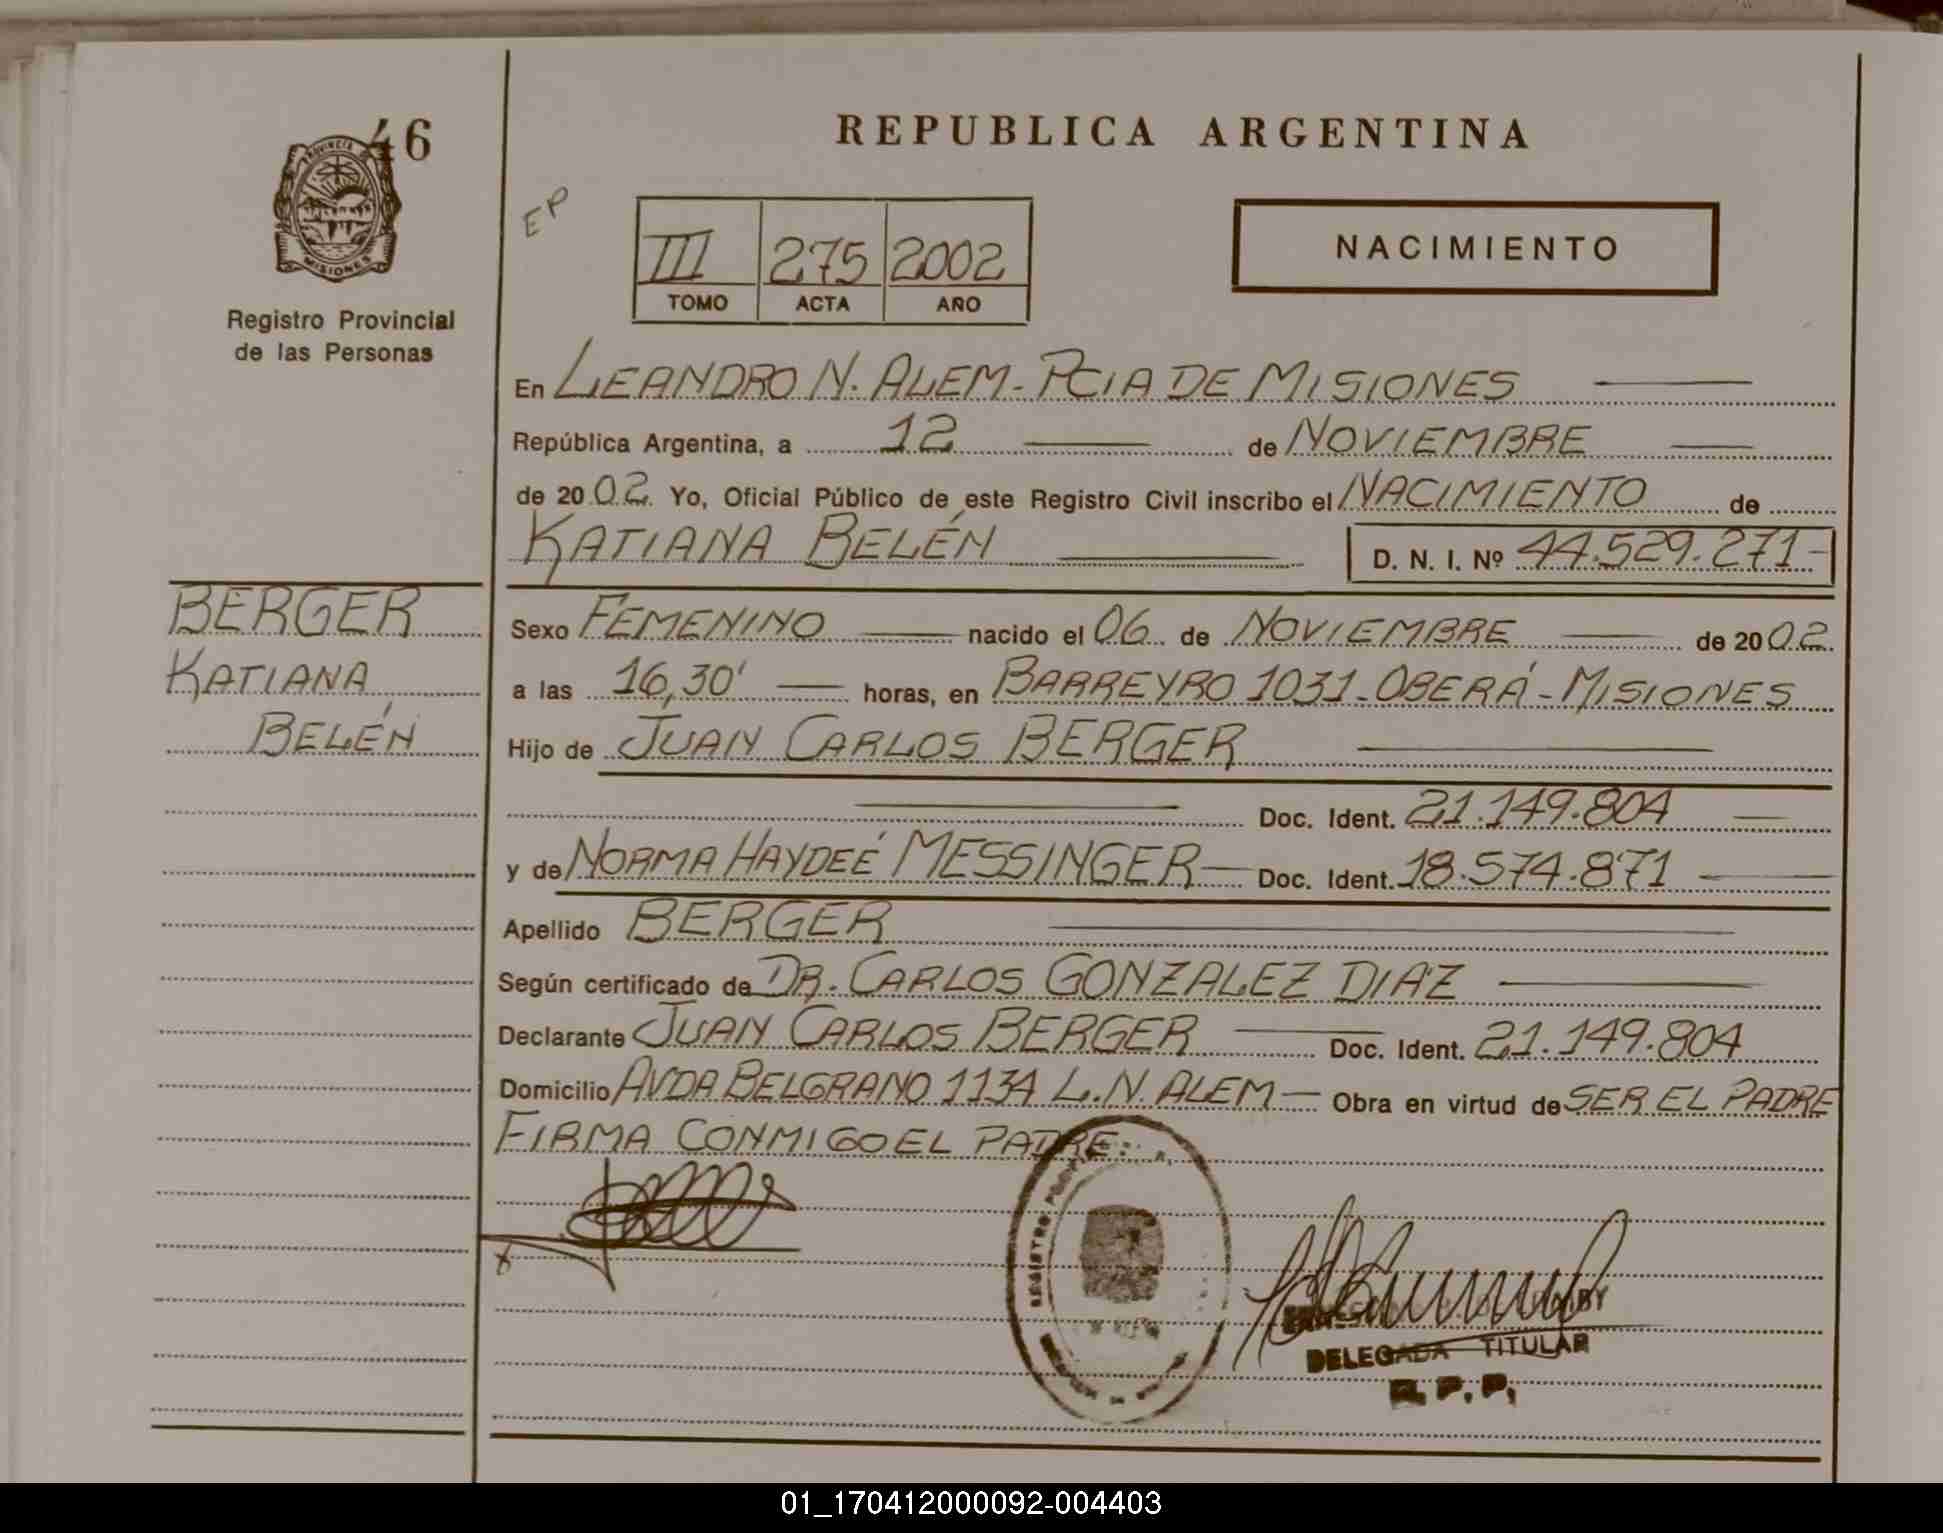 46
PROVINCIA DE
MISIONES
Registro Provincial
de las Personas
REPUBLICA ARGENTINA
EP
III 275 2002
TOMO ACTA AÑO
NACIMIENTO
En LEANDRO N. ALEM - PCIA DE MISIONES
República Argentina, a 12 de NOVIEMBRE
de 2002. Yo, Oficial Público de este Registro Civil inscribo el NACIMIENTO de
KATIANA BELÉN D. N. I. Nº 44.529.271-
BERGER
KATIANA
BELÉN
Sexo FEMENINO nacido el 06 de NOVIEMBRE de 2002
a las 16,30' horas, en BARREYRO 1031 - OBERÁ - MISIONES
Hijo de JUAN CARLOS BERGER
Doc. Ident. 21.149.804
y de NORMA HAYDEÉ MESSINGER Doc. Ident. 18.574.871
Apellido BERGER
Según certificado de DR. CARLOS GONZALEZ DIAZ
Declarante JUAN CARLOS BERGER Doc. Ident. 21.149.804
Domicilio AVDA BELGRANO 1134 L.N. ALEM Obra en virtud de SER EL PADRE
FIRMA CONMIGO EL PADRE.
REGISTRO
DELEGADA TITULAR
R. P. P.
01_170412000092-004403